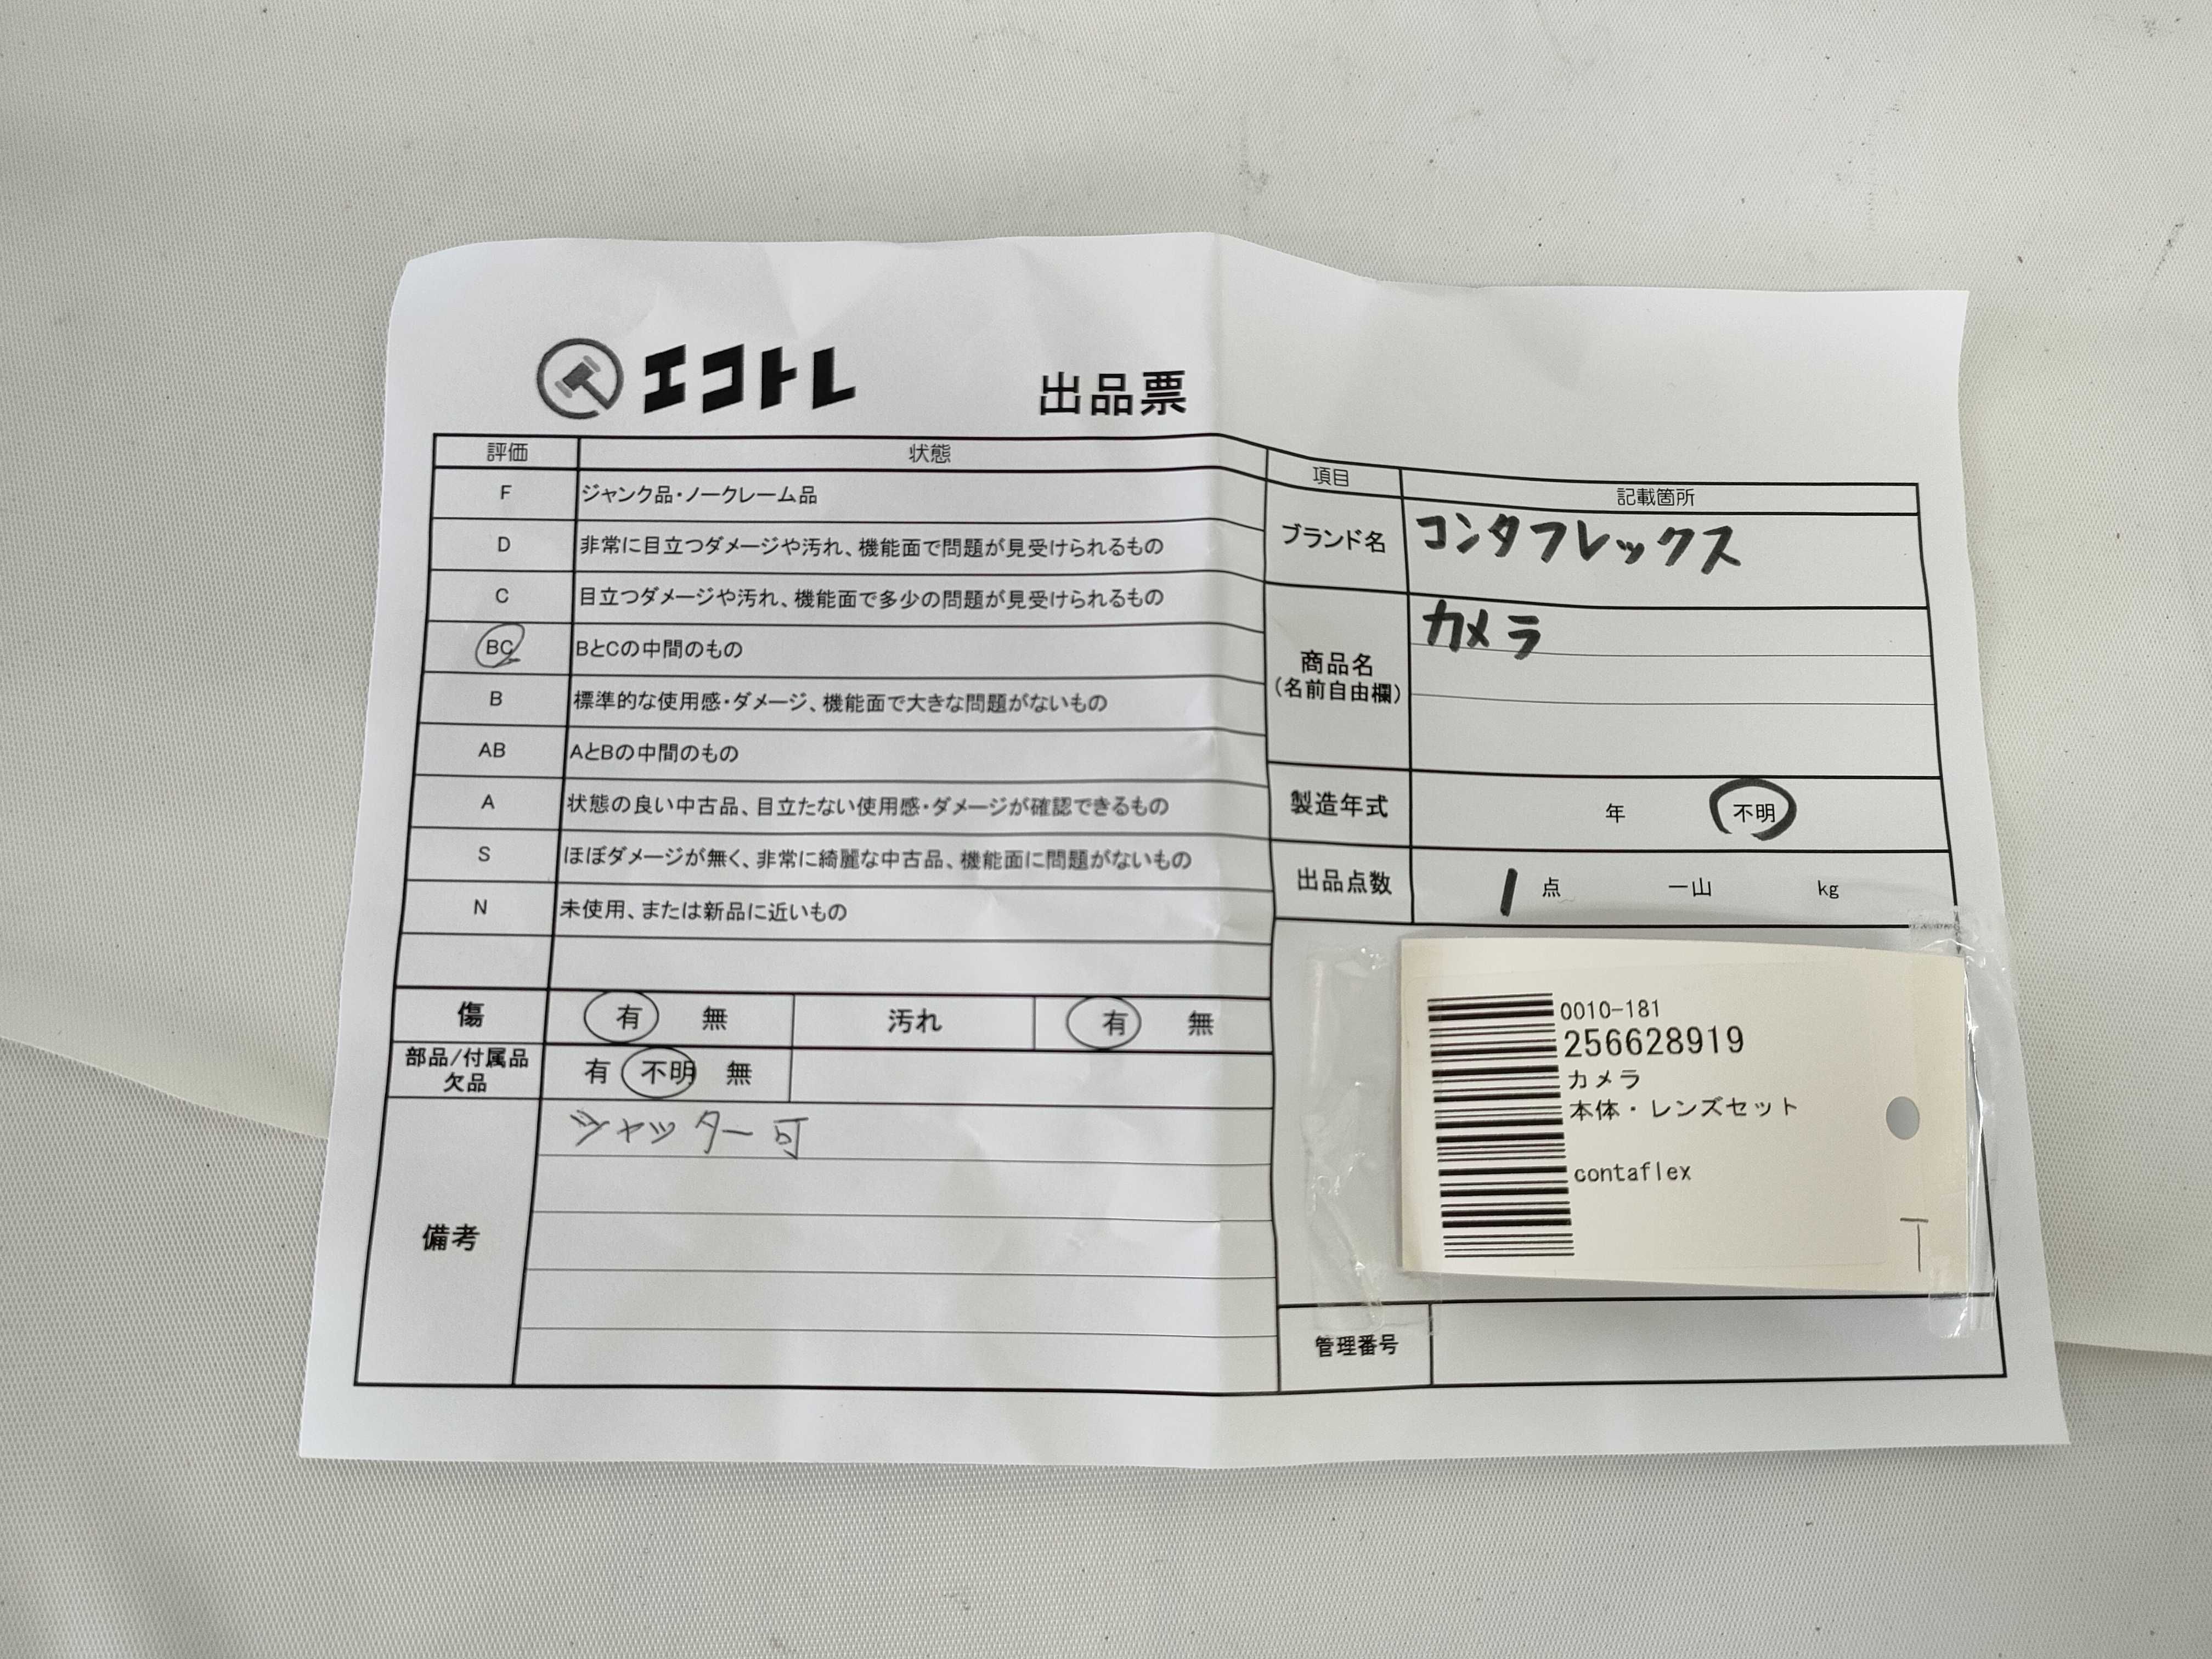 エコトレ
出品票
評価 状態
F ジャンク品・ノークレーム品
D 非常に目立つダメージや汚れ、機能面で問題が見受けられるもの
C 目立つダメージや汚れ、機能面で多少の問題が見受けられるもの
BC BとCの中間のもの
B 標準的な使用感・ダメージ、機能面で大きな問題がないもの
AB AとBの中間のもの
A 状態の良い中古品、目立たない使用感・ダメージが確認できるもの
S ほぼダメージが無く、非常に綺麗な中古品、機能面に問題がないもの
N 未使用、または新品に近いもの
傷 有 無 汚れ 有 無
部品/付属品
欠品
有 不明 無
備考
シャッター可
項目 記載箇所
ブランド名 コンタフレックス
商品名
(名前自由欄)
カメラ
製造年式 年 不明
出品点数 1 点 一山 kg
0010-181
256628919
カメラ
本体・レンズセット
contaflex
T
管理番号